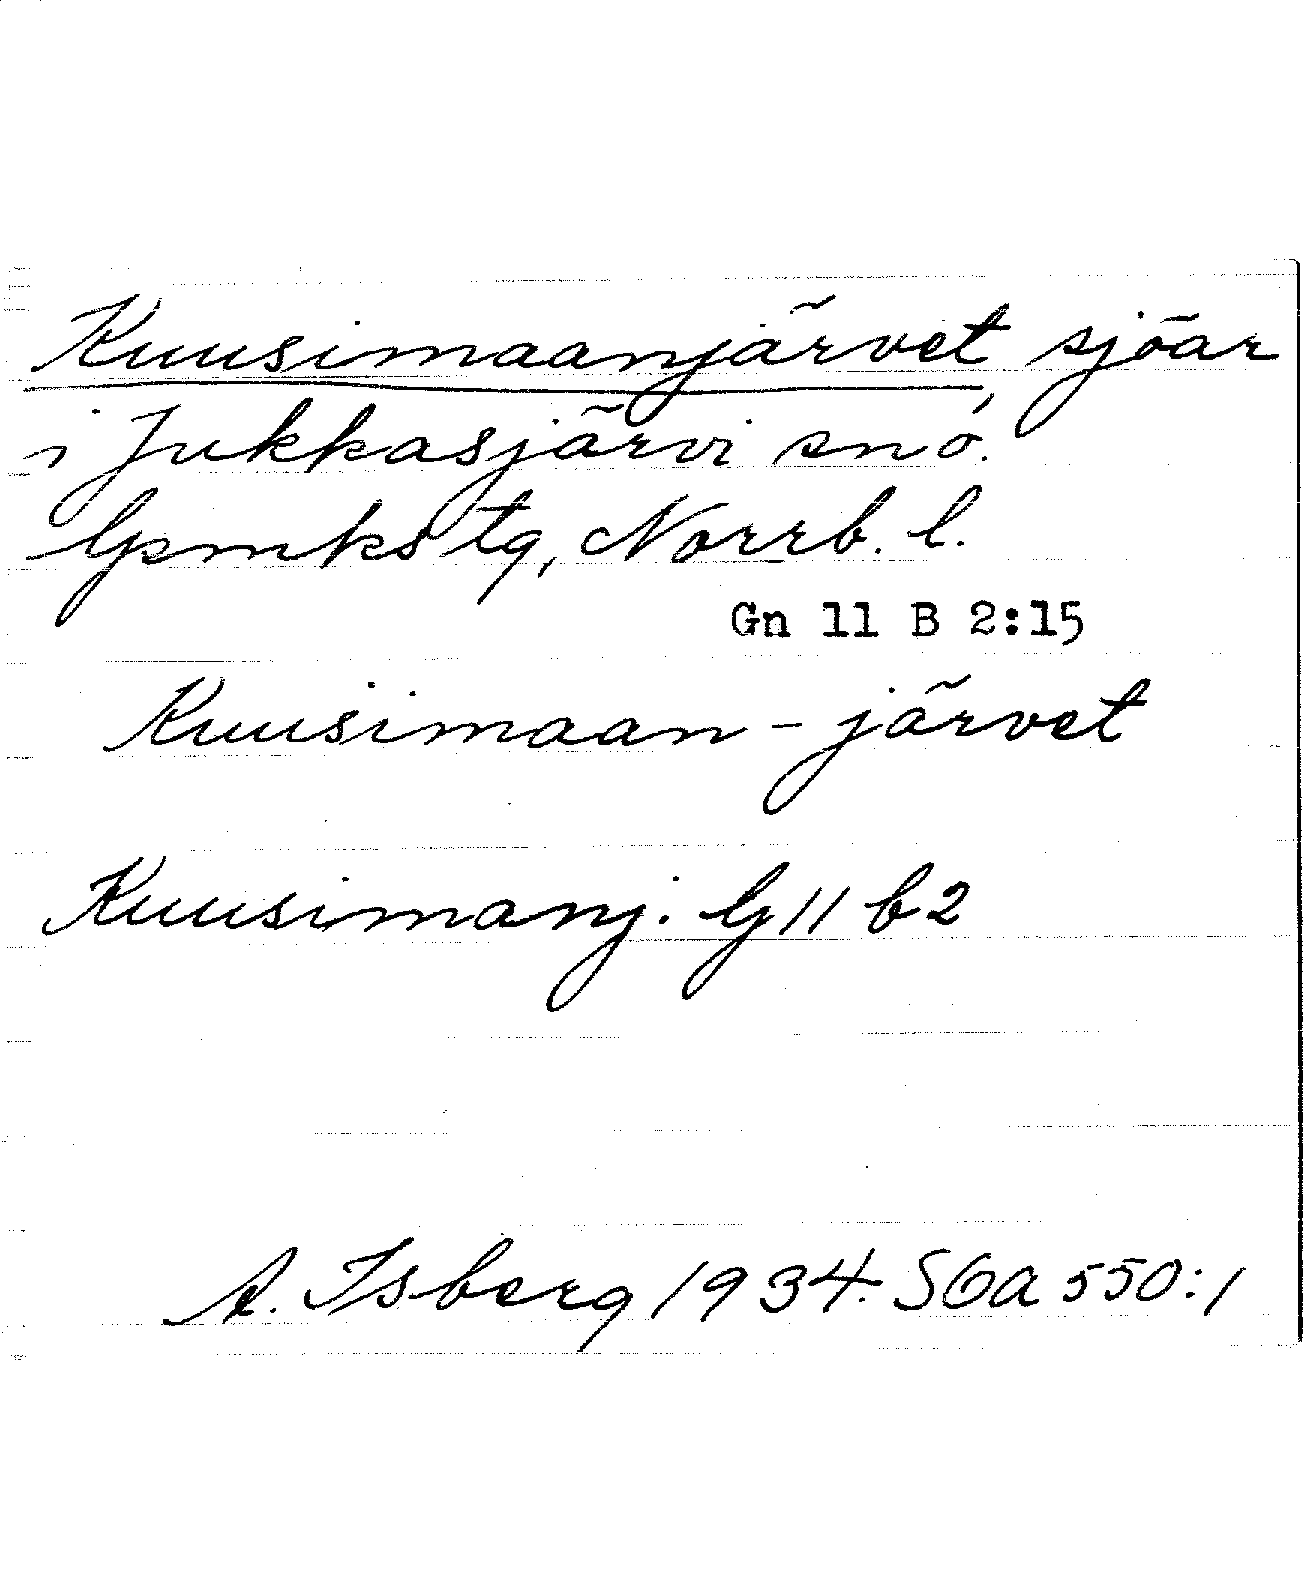 Kuusimaanjärvet, sjöar
i Jukkasjärvi sn o.
Gpmks tg, Norrb. l.
Gn 11 B 2:15
Kuusimaan - järvet
Kuusimanj. G 11 b 2
A. Isberg 1934. SGa 550:1